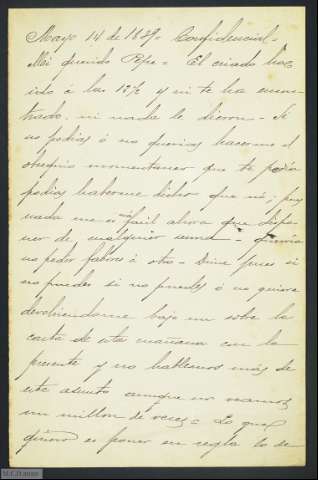 Mayo 14 de 1889 - Confidencial -
Mi querido Pepe = El criado ha
ido á las 12½ y ni te ha encon-
trado, ni nada le dieron - Si
no podias ó no querias hacerme el
obsequio momentaneo que te pedia
podias haberme dicho que nó; pues
nada me es mas facil ahora que dispo-
ner de cualquier suma - queria
no pedir favores á otro - Dime pues si
no puedes si no puedes ó no quieres
devolviendome bajo un sobre la
carta de esta mañana con la
presente y no hablemos más de
este asunto aunque nos veamos
un millon de veces = Lo que
quiero es poner en regla lo de